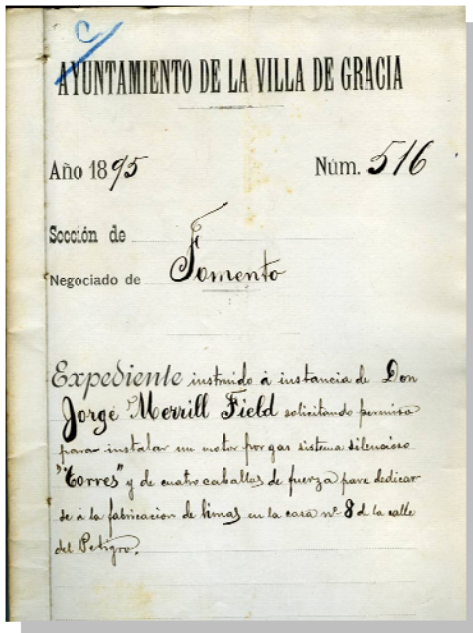 C
AYUNTAMIENTO DE LA VILLA DE GRACIA
Año 1895 Núm. 516
Sección de
Negociado de Fomento
Expediente instruido á instancia de Don
Jorge Merrill Field solicitando permiso
para instalar un motor por gas sistema silencioso
"Torres" y de cuatro caballos de fuerza para dedicar
se á la fabricacion de limas en la casa nº 8 d la calle
del Peligro.